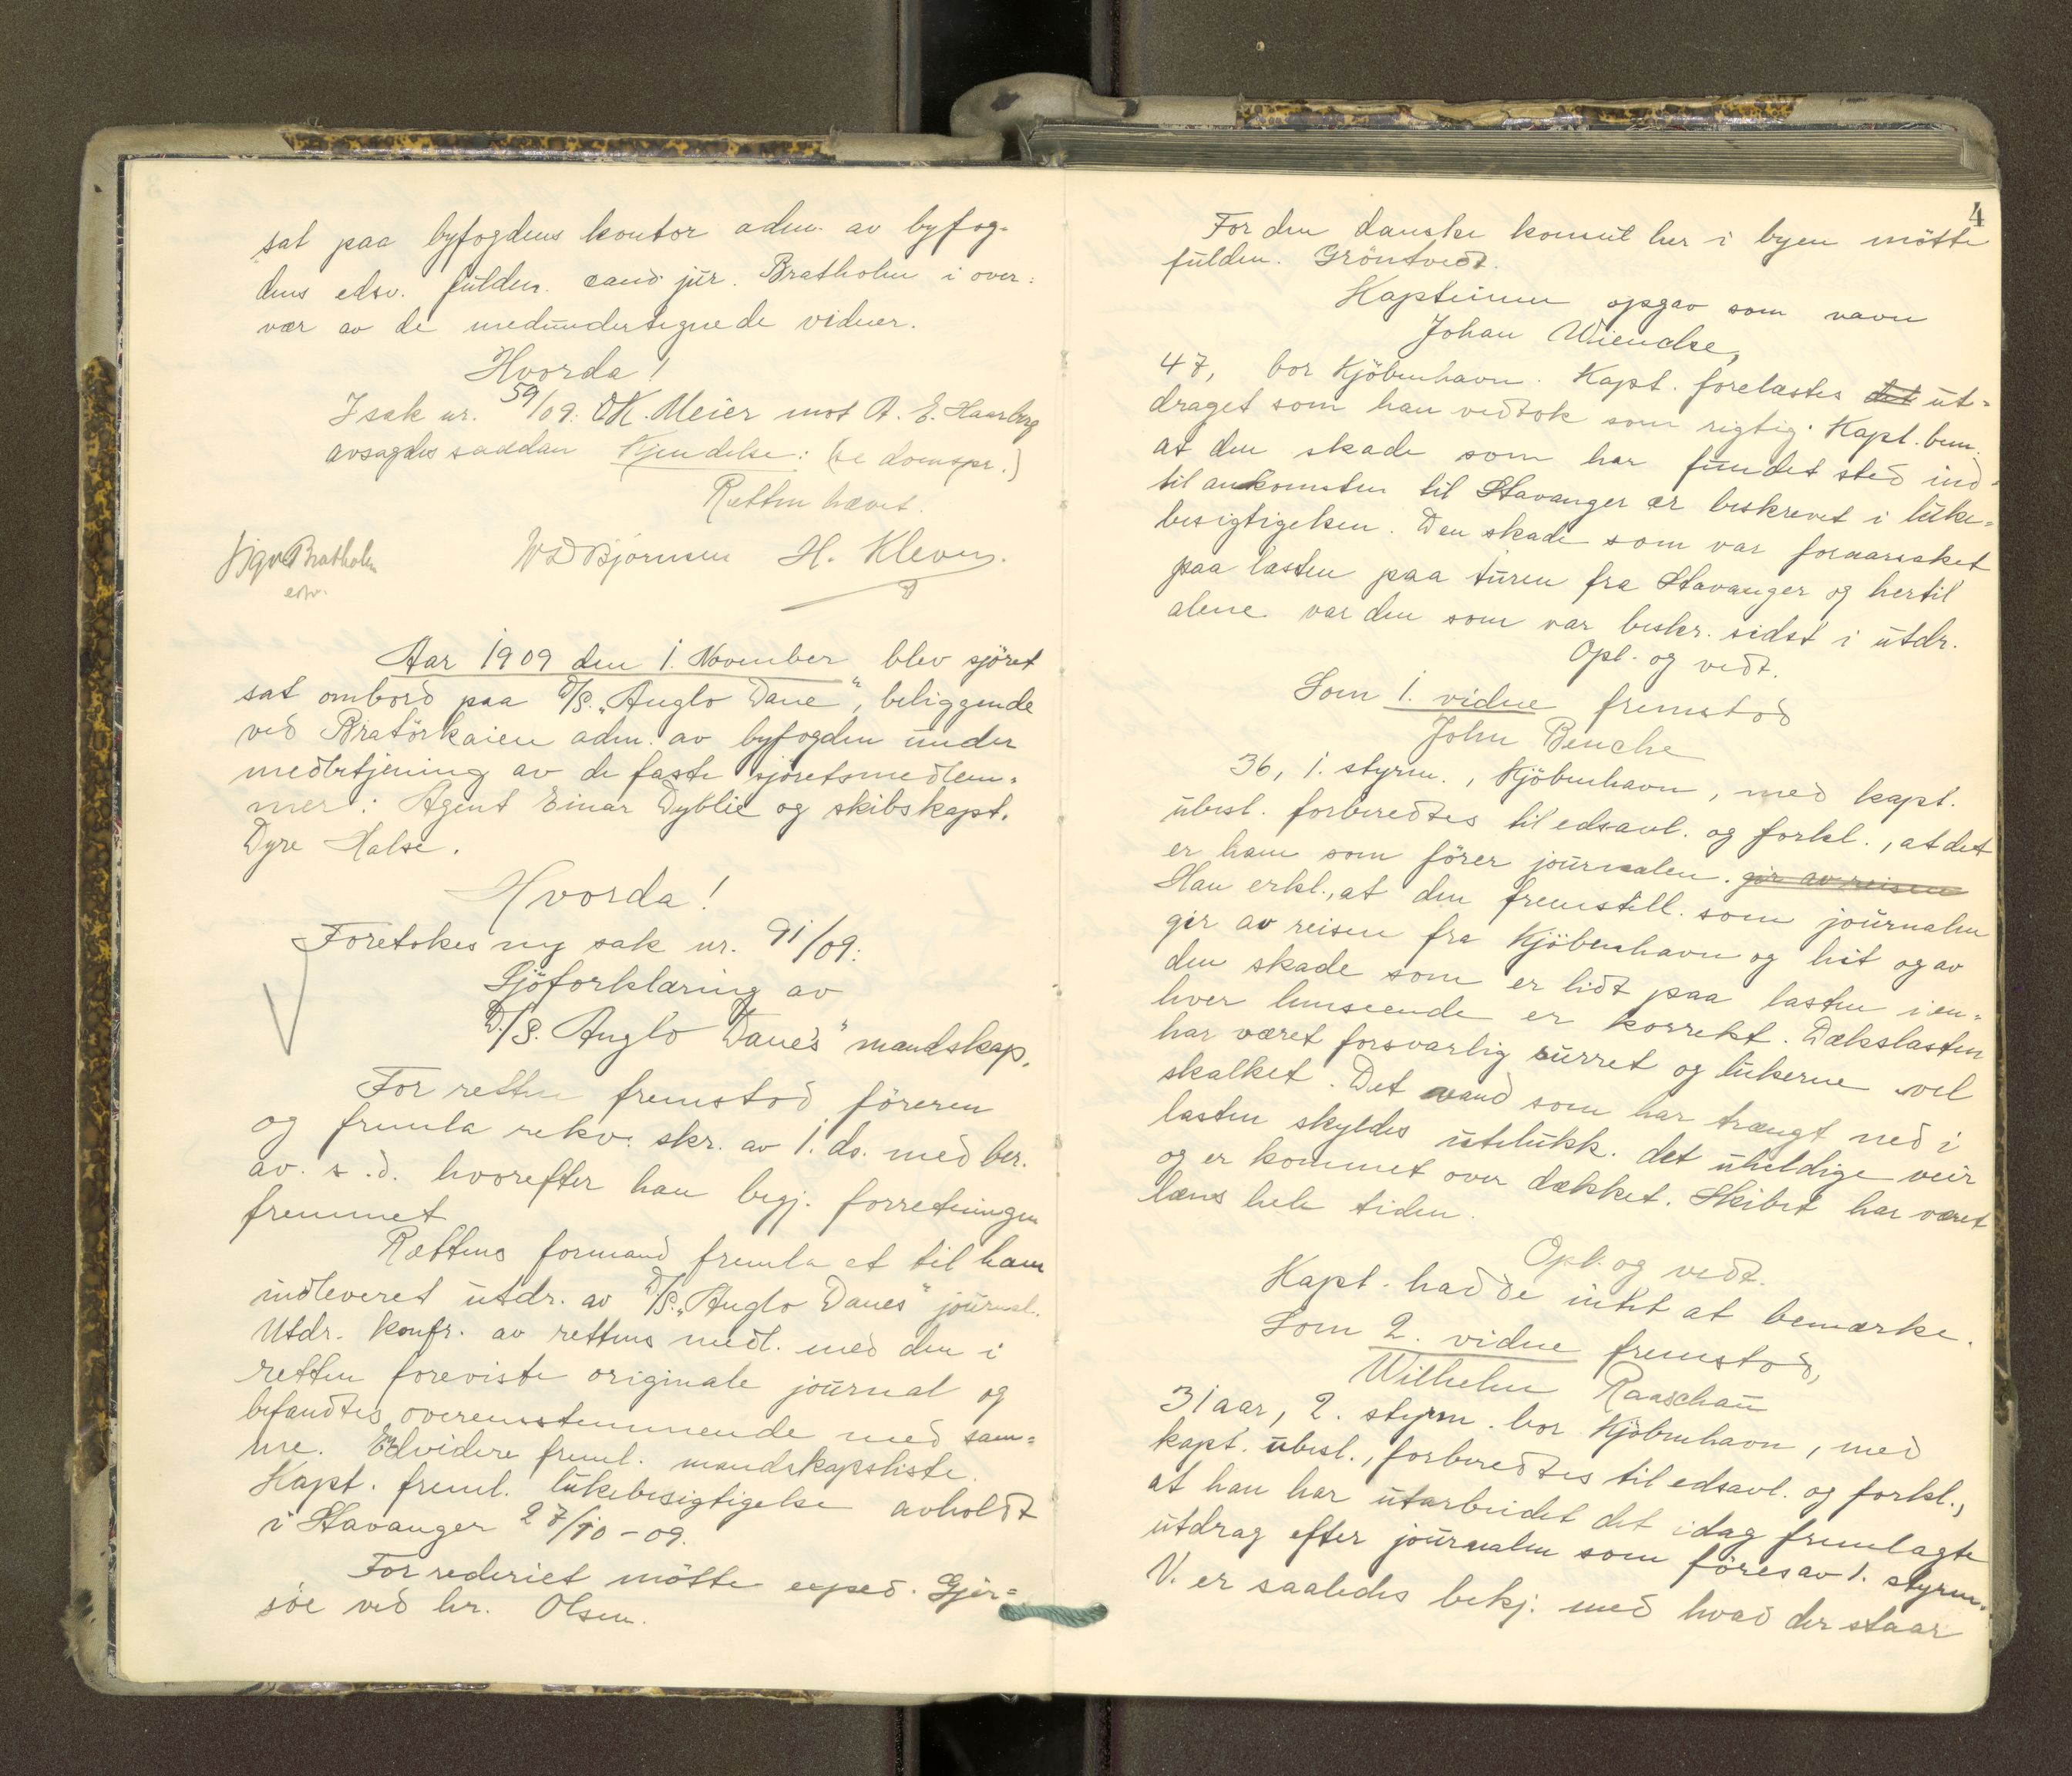 sat paa byfogdens kontor adm. av byfog-
dens edsv. fuldm. cand jur. Bratholm i over:
vær av de medundertegnede vidner.
Hvorda!
I sak nr. 59/09: O.K. Meier mot A. E. Haarberg
avsagdes saadan Kjendelse: (se domspr.)
Retten hævet.
Sign Bratholm
edsv.
Bjørnsen H. Kleven.
Aar 1909 den 1. November blev sjöret
sat ombord paa D/S. „Anglo Dane“, beliggende
ved Bratörkaien adm. av byfogden under
medbetjening av de faste sjöretsmedlem-
mer: Agent Einar Dyblie og skibskapt.
Dyre Halse.
Hvorda!
Foretokes ny sak nr. 91/09:
Sjöforklaring av
D/S. Anglo Danes“ mandskap.
For retten fremstod föreren
og fremla rekv. skr. av 1. ds. med ber.
av. s.d. hvorefter han begj. forretningen
fremmet
Rettens formand fremla et til ham
indleveret utdr. av D/S. „Anglo Danes“ journal.
Utdr. konfr. av rettens medl. med den i
retten foreviste originale journal og
befandtes overensstemmende med sam-
me. Endvidere freml. mandskapsliste.
Kapt. freml. lukebesigtigelse avholdt
i Stavanger 27/10-09.
For rederiet mötte exped. Gjer-
söe ved hr. Olsen.
4
For den danske konsul her i byen mötte
fuldm. Gröntvedt.
Kapteinen opgav som navn
Johan Wiencke,
47, bor Kjöbenhavn. Kapt. forelæstes det ut-
draget som han vedtok som rigtig. Kapt. bem.
at den skade som har fundet sted ind-
til ankomsten til Stavanger er beskrevet i luke-
besigtigelsen. Den skade som var foraarsaket
paa lasten paa turen fra Stavanger og hertil
alene var den som var beskr. sidst i utdr.
Opl. og vedt.
Som 1. vidne fremstod
John Bencke
36, 1. styrm., Kjöbenhavn, med kapt.
ubesl. forberedtes til edsavl. og forkl., at det
er ham som förer journalen. gir av reisen
Han erkl., at den fremstill. som journalen
gir av reisen fra Kjöbenhavn og hit og av
den skade som er lidt paa lasten i en-
hver henseende er korrekt. Dækslasten
har været forsvarlig surret og lukerne vel
skalket. Det vand som har trængt ned i
lasten skyldes utelukk. det uheldige veir
og er kommet over dækket. Skibet har været
læns hele tiden.
Opl. og vedt.
Kapt. hadde intet at bemærke.
Som 2. vidne fremstod,
Wilhelm Raaschau
31 aar, 2. styrm. bor Kjöbenhavn, med
kapt. ubesl., forberedtes til edsavl. og forkl.,
at han har utarbeidet det idag fremlagte
utdrag efter journalen som föres av 1. styrm.
V. er saaledes bekj. med hvad der staar